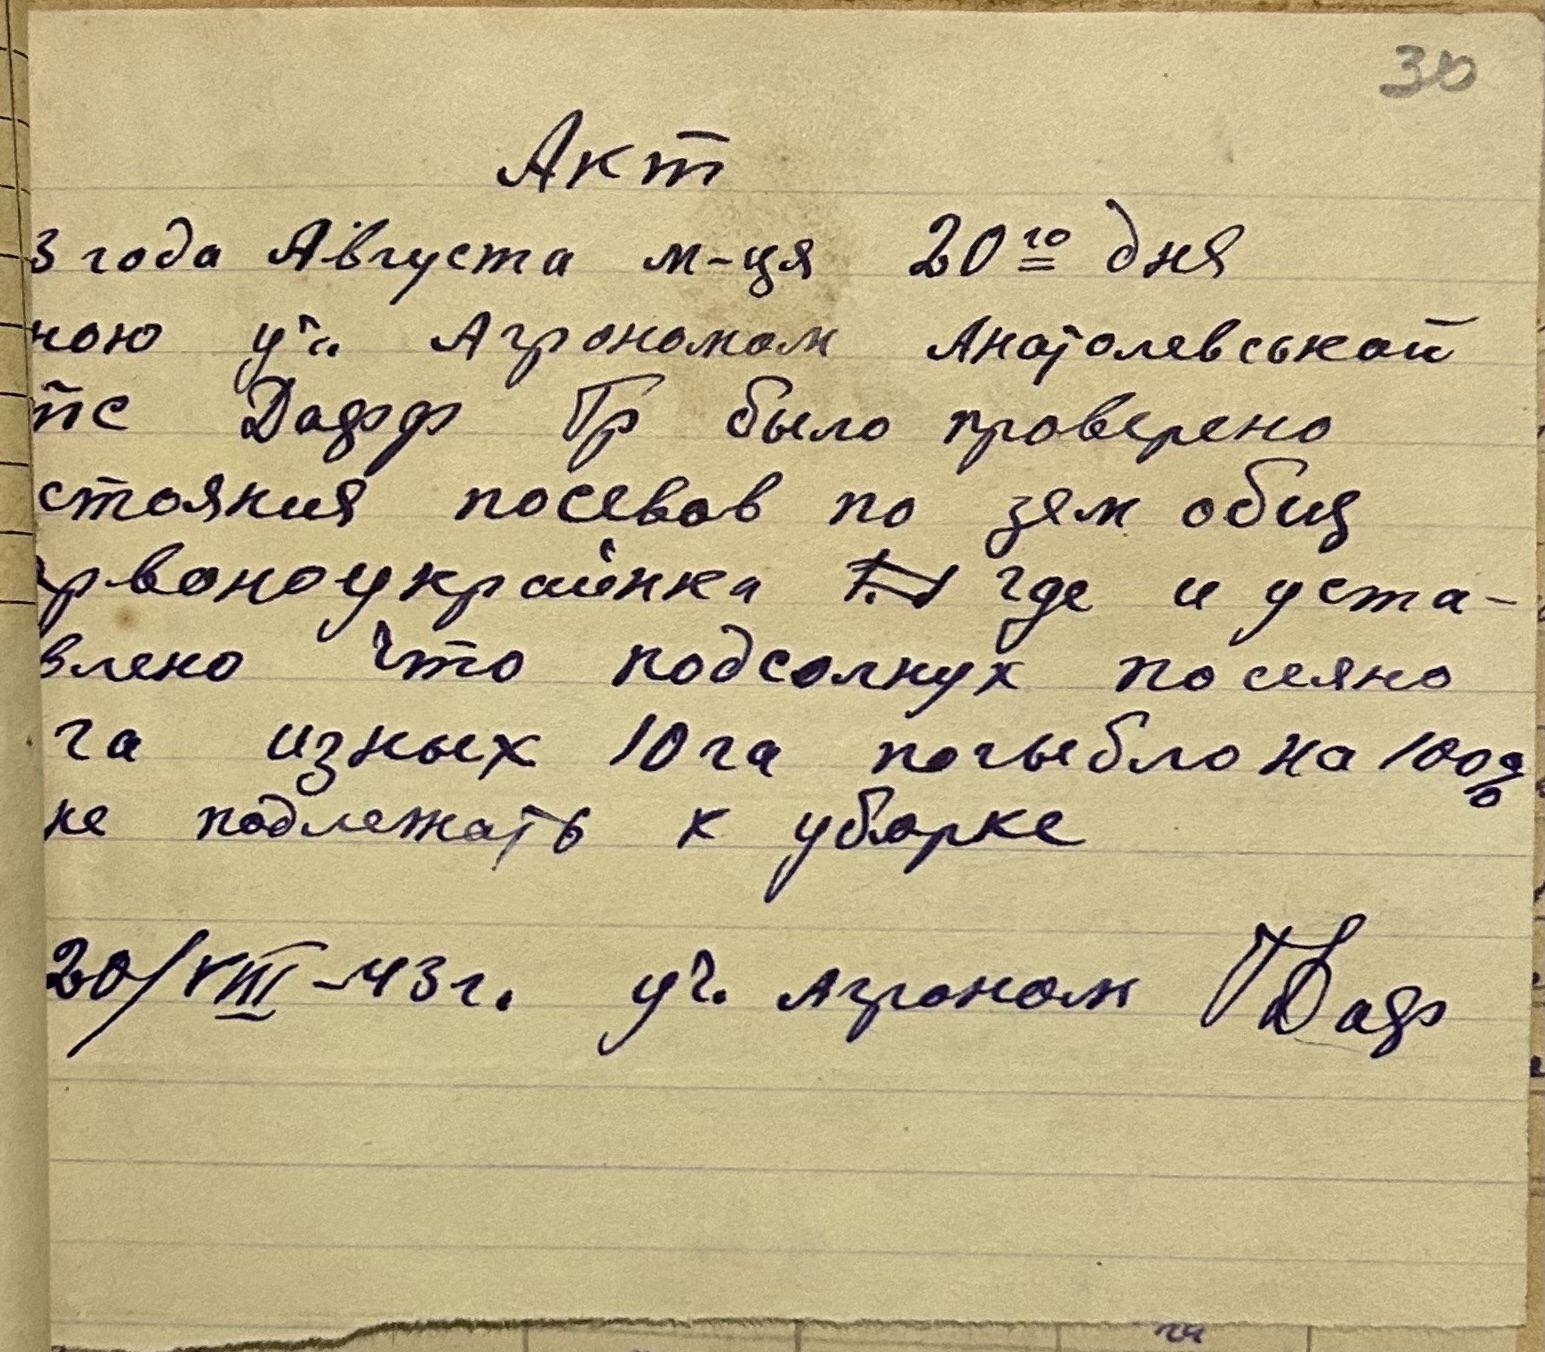 30
Акт
3 года Августа м-ця 20го дня
ною уч. Агрономом Анатолевськой
тс Дафф Гр было проверено
стояния посевов по зем общ
рвоноукраинка где и уста-
влено что подсолнух посеяно
га изных 10 га погыбло на 100%
не подлежать к уборке
20/VIII-43 г. уч. агроном ГДаф